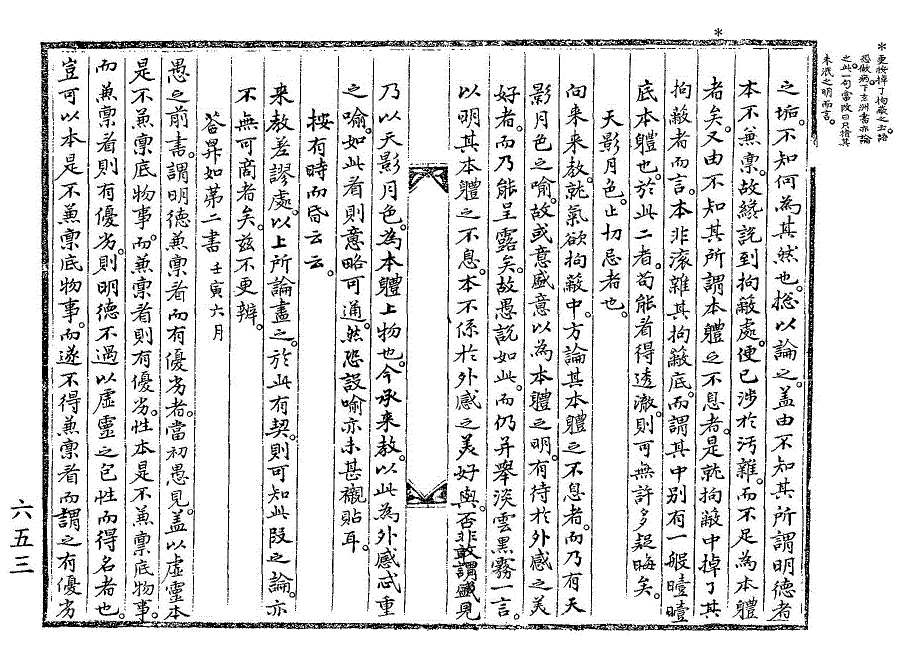 *
*更按掉了拘蔽之云語
恐做病下玄洲書亦論
之此一句當改曰只指其
未泯之明而言
之垢。不知何為其然也。揔以論之。盖由不知其所謂明德者
本不兼禀。故緣說到拘蔽處。便已涉於污雜。而不足為本體
者矣。又由不知其所謂本體之不息者。是就拘蔽中掉了其
拘蔽者而言。本非滚雜其拘蔽底。而謂其中別有一般曀曀
底本體也。於此二者。苟能看得透澈。則可無許多疑晦矣。
天影月色。止切忌者也。
向來來教。就氣欲拘蔽中。方論其本體之不息者。而乃有天
影月色之喻。故或意盛意以為本體之明。有待於外感之美
好者。而乃能呈露矣。故愚說如此。而仍并舉淡雲黑霧一言。
以明其本體之不息。本不係於外感之美好與否。非敢謂盛見
乃以天影月色。為本體上物也。今承來教。以此為外感忒重
之喻。如此看則意略可通。然恐設喻亦未甚襯貼耳。
按有時而昏云云。
來教差謬處。以上所論盡之。於此有契。則可知此段之論。亦
不無可商者矣。玆不更辨。
答羿如第二書 壬寅六月
愚之前書。謂明德兼禀者而有優劣者。當初愚見。盖以虛靈本
是不兼禀底物事。而兼禀者則有優劣。性本是不兼禀底物事。
而兼禀者則有優劣。則明德不過以虛靈之包性而得名者也。
豈可以本是不兼禀底物事。而遂不得兼禀者而謂之有優劣
六五三